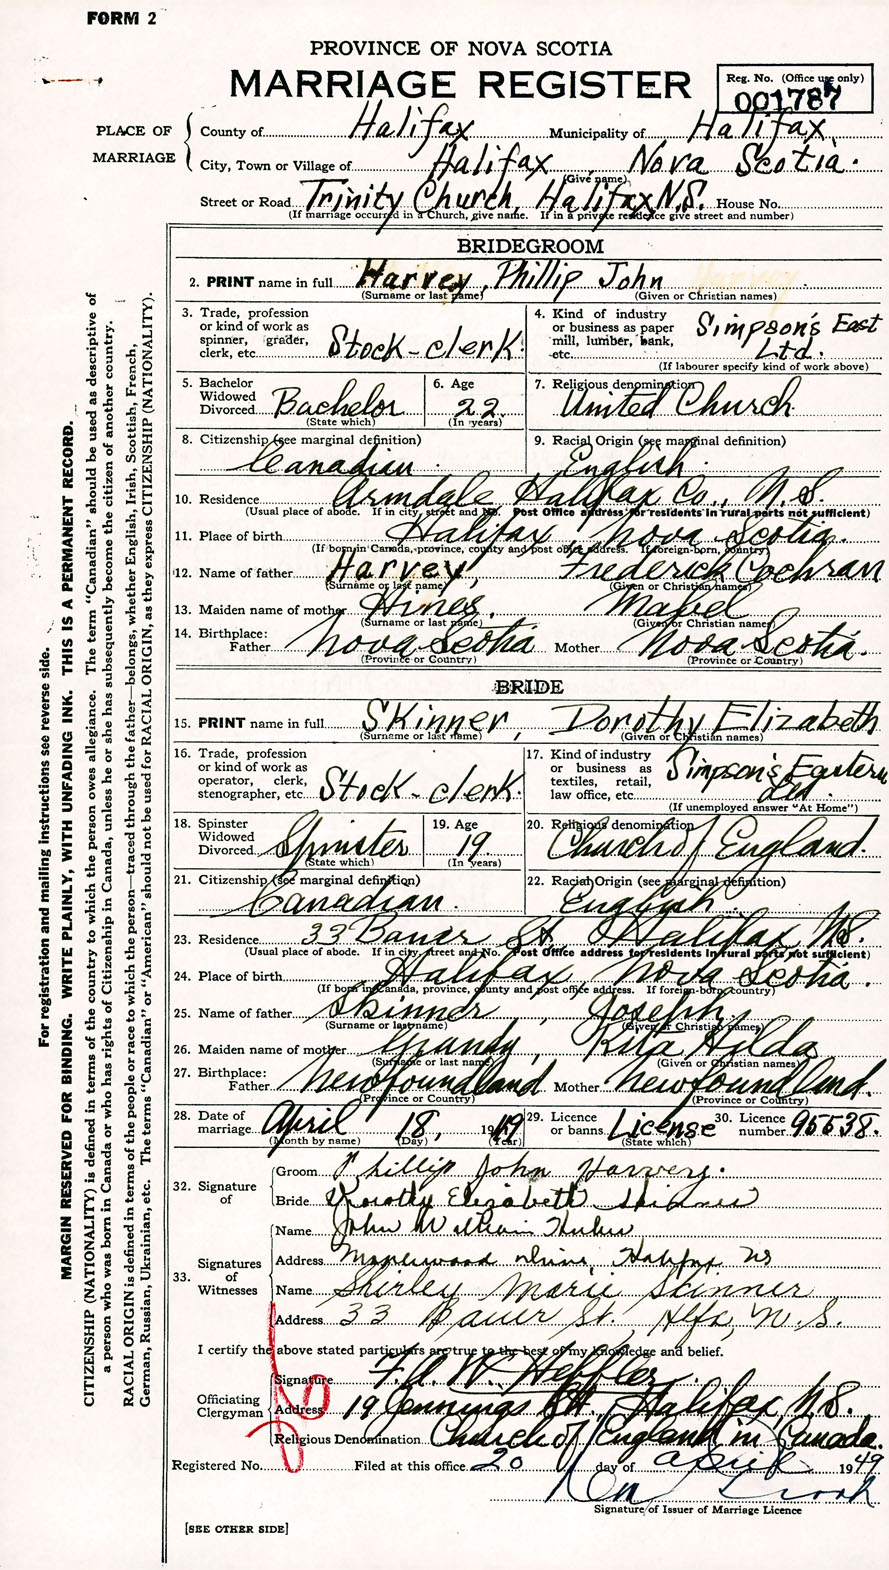 FORM 2
PROVINCE OF NOVA SCOTIA
MARRIAGE REGISTER
Reg. No. (Office use only)
001787
PLACE OF MARRIAGE
County of Halifax Municipality of Halifax
City, Town or Village of Halifax, Nova Scotia.
(Give name)
Street or Road Trinity Church, Halifax N.S. House No.
(If marriage occurred in a Church, give name. If in a private residence give street and number)
BRIDEGROOM
2. PRINT name in full Harvey, Phillip John
(Surname or last name) (Given or Christian names)
3. Trade, profession or kind of work as spinner, grader, clerk, etc. Stock-clerk.
4. Kind of industry or business as paper mill, lumber, bank, etc. Simpson's East Ltd.
(If labourer specify kind of work above)
5. Bachelor Widowed Divorced Bachelor
(State which)
6. Age 22
(In years)
7. Religious denomination United Church.
8. Citizenship (see marginal definition) Canadian.
9. Racial Origin (see marginal definition) English.
10. Residence Armdale Halifax Co., N.S.
(Usual place of abode. If in city, street and No. Post Office address for residents in rural parts not sufficient)
11. Place of birth Halifax, Nova Scotia.
(If born in Canada, province, county and post office address. If foreign-born, country)
12. Name of father Harvey, Frederick Cochran
(Surname or last name) (Given or Christian names)
13. Maiden name of mother Hines. Mabel
(Surname or last name) (Given or Christian names)
14. Birthplace: Father Nova Scotia Mother Nova Scotia.
(Province or Country) (Province or Country)
BRIDE
15. PRINT name in full Skinner, Dorothy Elizabeth
(Surname or last name) (Given or Christian names)
16. Trade, profession or kind of work as operator, clerk, stenographer, etc. Stock-clerk.
17. Kind of industry or business as textiles, retail, law office, etc. Simpson's Eastern Ltd.
(If unemployed answer "At Home")
18. Spinster Widowed Divorced Spinster
(State which)
19. Age 19.
(In years)
20. Religious denomination Church of England.
21. Citizenship (see marginal definition) Canadian.
22. Racial Origin (see marginal definition) English
23. Residence 33 Bauer St. Halifax N.S.
(Usual place of abode. If in city, street and No. Post Office address for residents in rural parts not sufficient)
24. Place of birth Halifax, Nova Scotia.
(If born in Canada, province, county and post office address. If foreign-born, country)
25. Name of father Skinner, Joseph.
(Surname or last name) (Given or Christian names)
26. Maiden name of mother Grandy, Rita Hilda
(Surname or last name) (Given or Christian names)
27. Birthplace: Father Newfoundland Mother Newfoundland.
(Province or Country) (Province or Country)
28. Date of marriage April 18, 1949
(Month by name) (Day) (Year)
29. Licence or banns License
(State which)
30. Licence number 95538.
32. Signature of
Groom Phillip John Harvey.
Bride Dorothy Elizabeth Skinner
33. Signatures of Witnesses
Name John William
Address Drive, Halifax NS
Name Shirley Marie Skinner
Address 33 Bauer St. Hlfx, N.S.
I certify the above stated particulars are true to the best of my knowledge and belief.
Officiating Clergyman
Signature W. Heffler.
Address 19 Jennings St., Halifax, N.S.
Religious Denomination Church of England in Canada.
Registered No. Filed at this office 20 day of April 1949
Signature of Issuer of Marriage Licence
[SEE OTHER SIDE]
For registration and mailing instructions see reverse side.
MARGIN RESERVED FOR BINDING. WRITE PLAINLY, WITH UNFADING INK. THIS IS A PERMANENT RECORD.
CITIZENSHIP (NATIONALITY) is defined in terms of the country to which the person owes allegiance. The term "Canadian" should be used as descriptive of
a person who was born in Canada or who has rights of Citizenship in Canada, unless he or she has subsequently become the citizen of another country.
RACIAL ORIGIN is defined in terms of the people or race to which the person—traced through the father—belongs, whether English, Irish, Scottish, French,
German, Russian, Ukrainian, etc. The terms "Canadian" or "American" should not be used for RACIAL ORIGIN, as they express CITIZENSHIP (NATIONALITY).